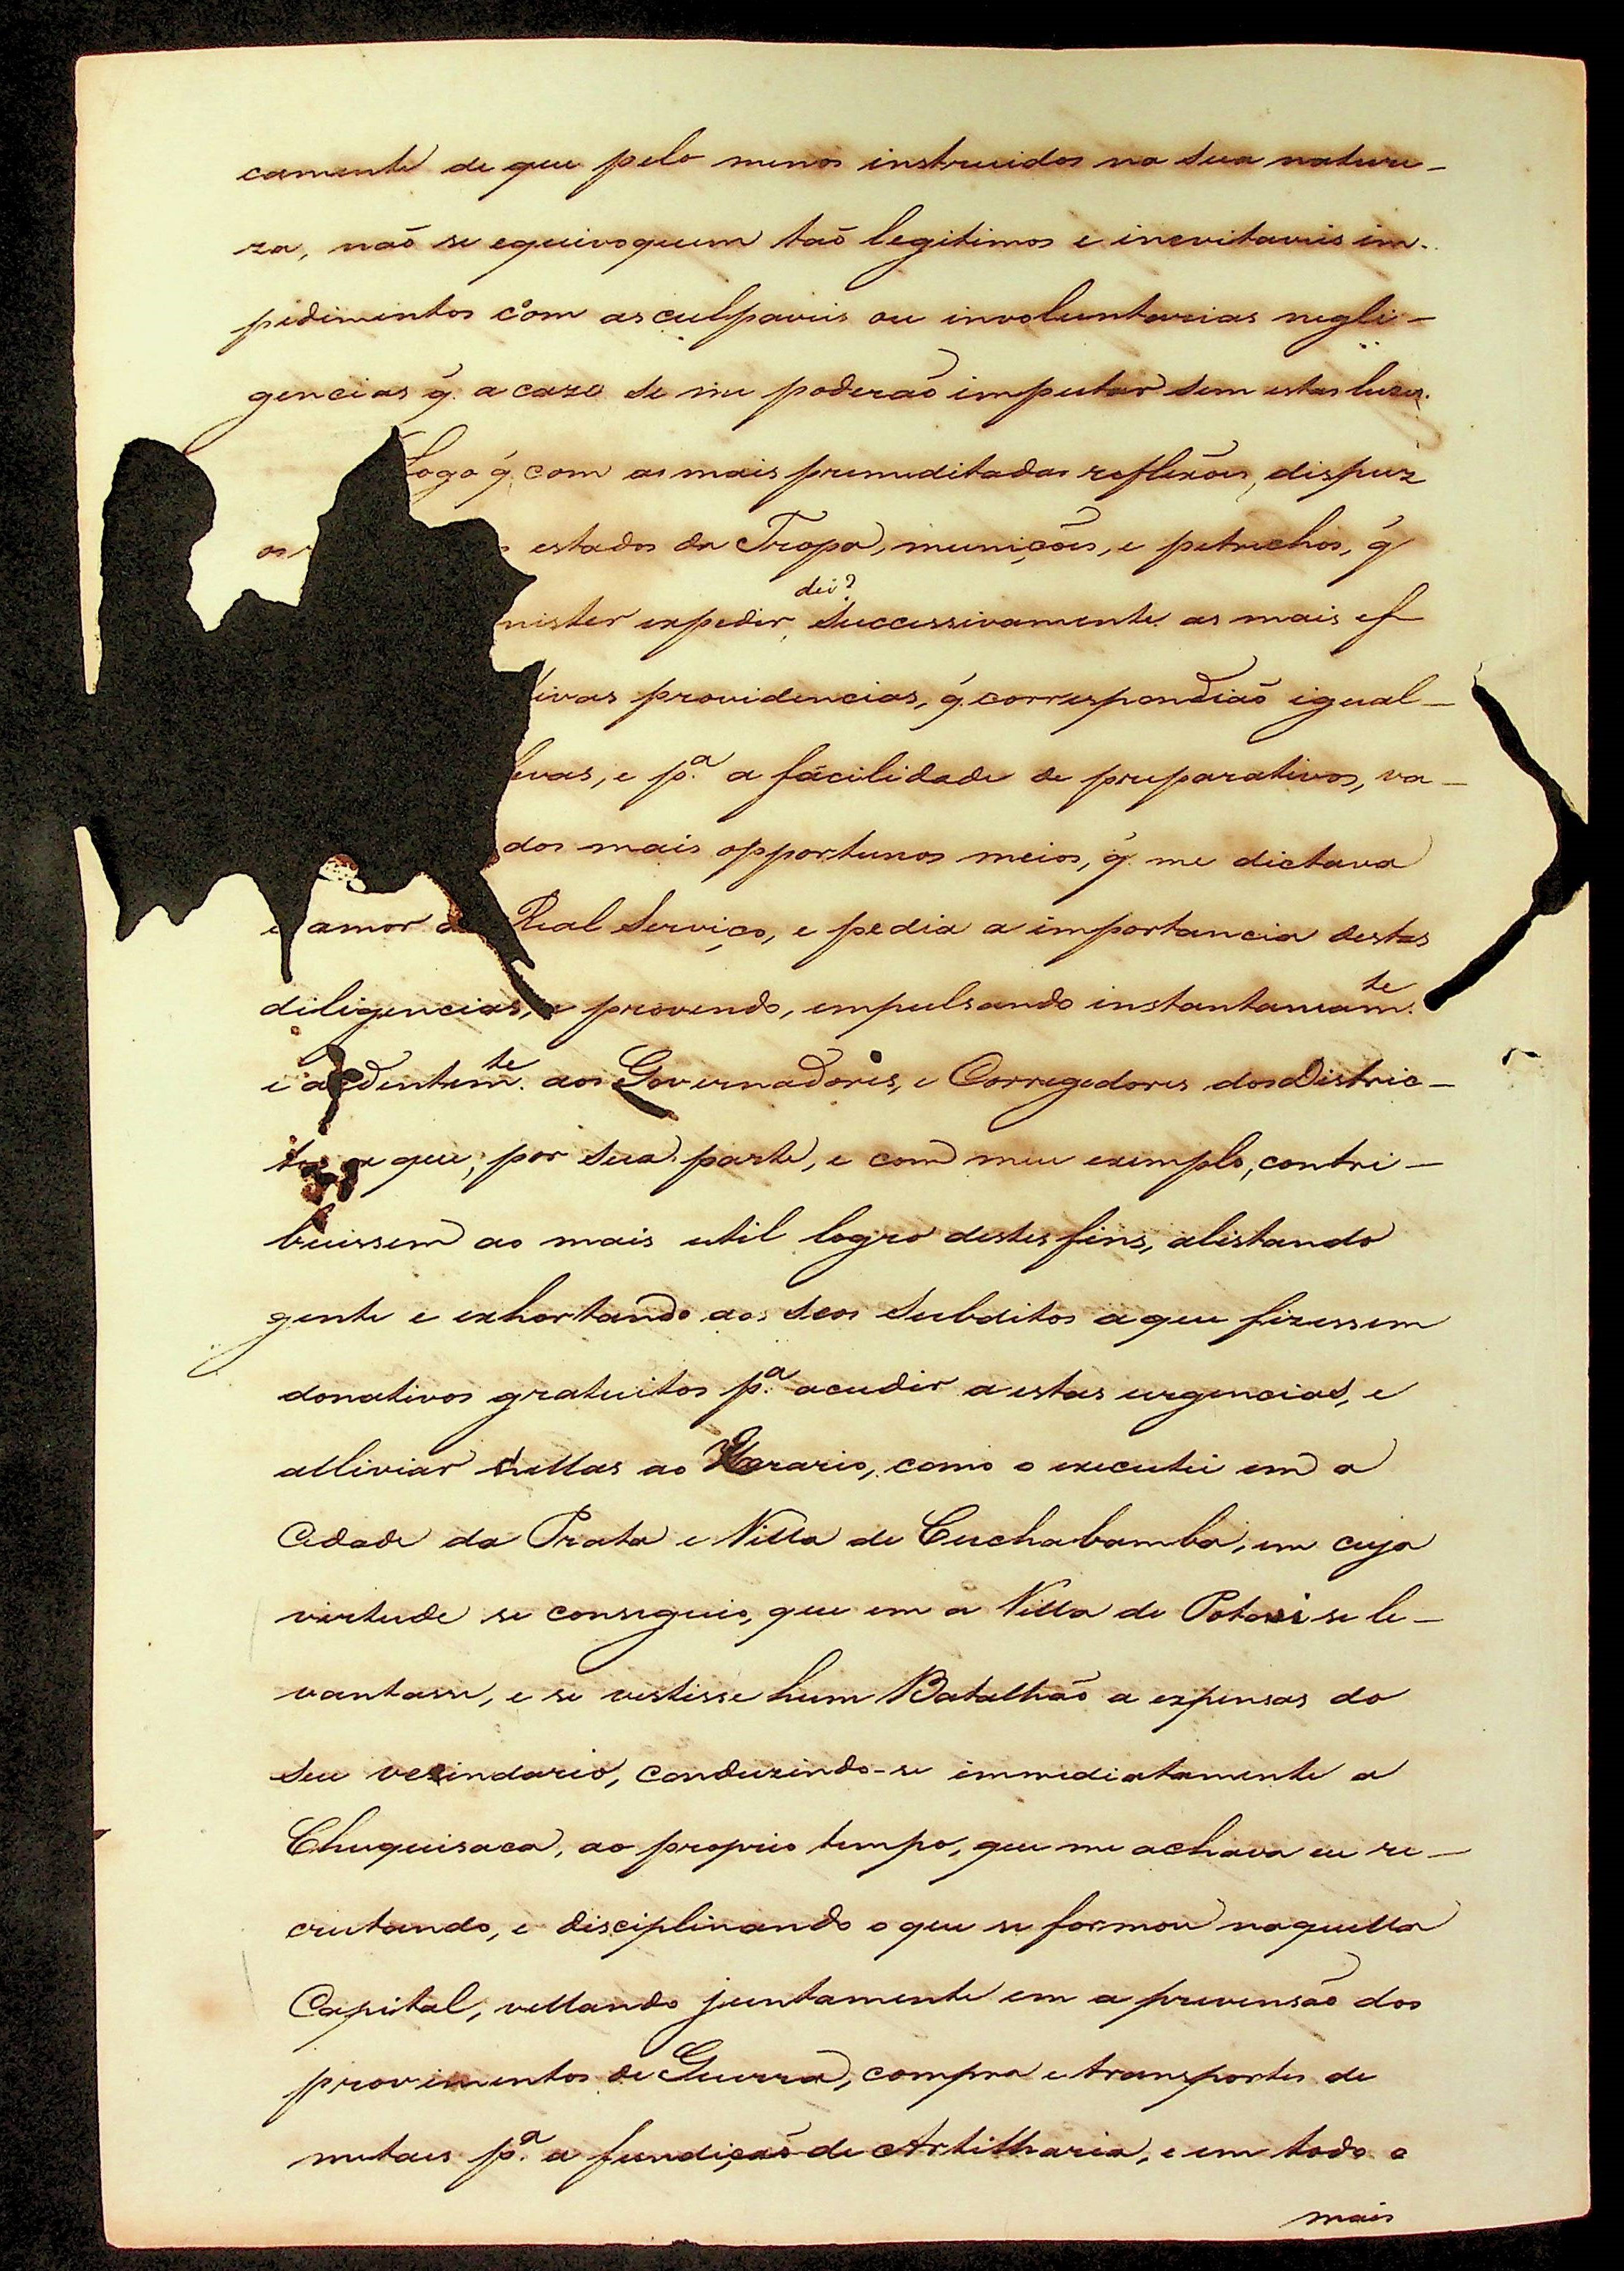 camente de que pelo menos instruidos na sua nature-
za, naõ se equivoquem taõ legitimos e inevitaveis im-
pedimentos com as culpaveis ou involuntarias negli-
gencias q̃. a cazo se me poderaõ imputar sem estas luzes.
Logo q̃. com as mais premeditadas reflexões, dispuz
os estados da Tropa, munições, e petrechos, q̃
dei?
nister expedir, successivamente as mais ef
tivas providencias, q̃. correspondiaõ igual-
levas, e p.ª a fácilidade de preparativos, va-
dos mais opportunos meios, q̃. me dictava
o amor do Real Serviço, e pedia a importancia destas
diligencias, e provendo, empulsando instantaneam.te
e ardentem.te aos Governadores, e Corregedores dos Distric-
tos a que, por sua parte, e com meu exemplo, contri-
buissem ao mais util logro destes fins, alistando
gente e exhortando aos seos subditos a que fizessem
donativos gratuitos p.ª acudir a estas urgencias, e
alliviar dellas ao Herario, como o executei em a
Cidade da Prata e Villa de Cuchabamba, em cuja
virtude se conseguio, que em a Villa de Potosi se le-
vantasse, e se vestisse hum Batalhão a expensas do
seu vezindario, conduzindo-se immediatamente a
Chuquisaca, ao proprio tempo, que me achava eu re-
crutando, e disciplinando o que se formou naquella
Capital, vellando juntamente em a prevensão dos
provimentos de Guerra, compra e transportes de
metaes p.ª a fundiçaõ de Artilharia, e em todo o
mais